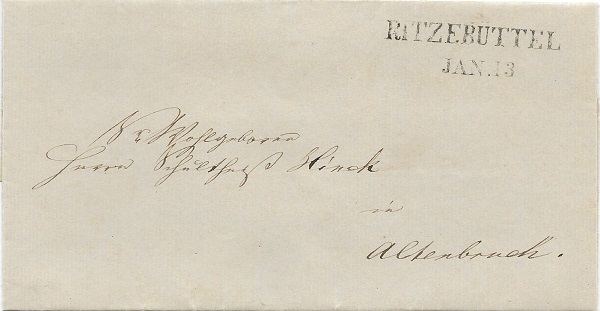 RITZEBÜTTEL
JAN. 13
Sr Wohlgeboren
Herrn Schultheiß Hinck
in
Altenbruch.